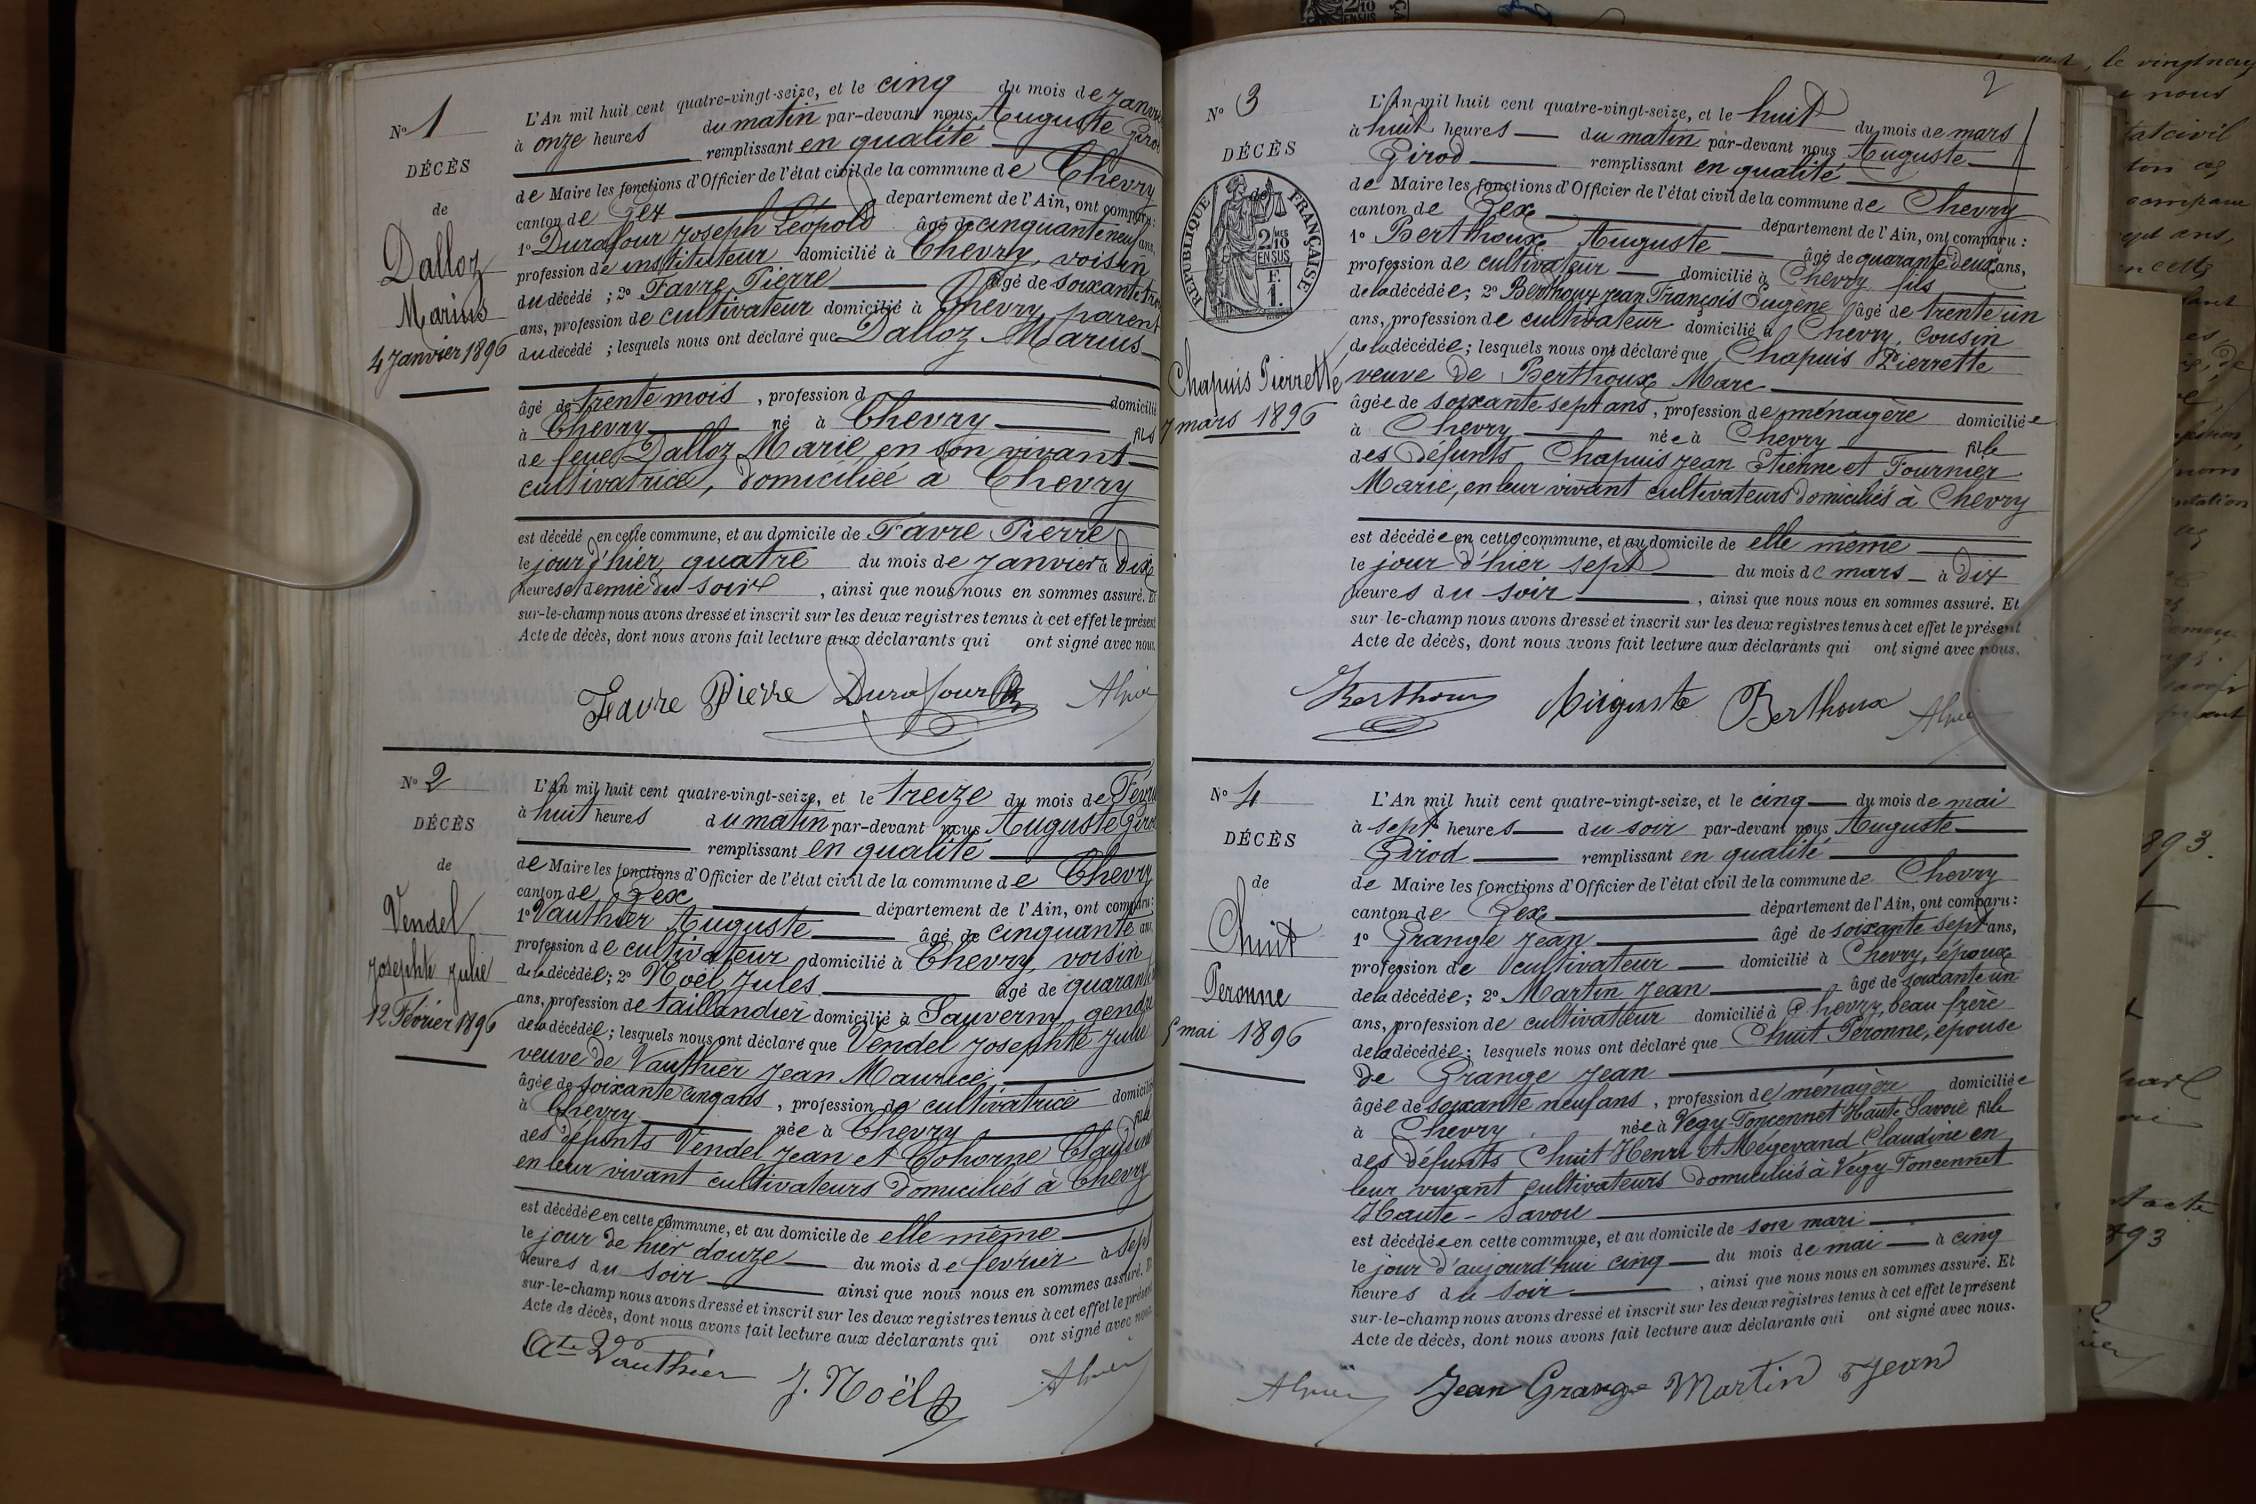 N° 1
DÉCÈS
de
Dalloz
Marius
4 Janvier 1896
L'An mil huit cent quatre-vingt-seize, et le cinq du mois de Janvier
à onze heures du matin par-devant nous Auguste Girod
remplissant en qualité
de Maire les fonctions d'Officier de l'état civil de la commune de Chevry
canton de Gex département de l'Ain, ont comparu :
1° Durafour Joseph Léopold âgé de cinquante neuf ans,
profession de instituteur domicilié à Chevry, voisin
du décédé ; 2° Favre Pierre âgé de soixante trois
ans, profession de cultivateur domicilié à Chevry, parent
du décédé ; lesquels nous ont déclaré que Dalloz Marius
âgé de trente mois , profession d domicilié
à Chevry né à Chevry fils
de feue Dalloz Marie en son vivant
cultivatrice, domiciliée à Chevry
est décédé en cette commune, et au domicile de Favre Pierre
le jour d'hier, quatre du mois de Janvier à dix
heures et demie du soir , ainsi que nous nous en sommes assuré. Et
sur-le-champ nous avons dressé et inscrit sur les deux registres tenus à cet effet le présent
Acte de décès, dont nous avons fait lecture aux déclarants qui ont signé avec nous.
Favre Pierre Durafour
N° 2
DÉCÈS
de
Vendel
Josephte Julie
12 Février 1896
L'An mil huit cent quatre-vingt-seize, et le treize du mois de Février
à huit heures du matin par-devant nous Auguste Girod
remplissant en qualité
de Maire les fonctions d'Officier de l'état civil de la commune de Chevry
canton de Gex département de l'Ain, ont comparu :
1° Vauthier Auguste âgé de cinquante ans,
profession de cultivateur domicilié à Chevry, voisin
de la décédée ; 2° Noël Jules âgé de quarante
ans, profession de taillandier domicilié à Sauverny, gendre
de la décédée ; lesquels nous ont déclaré que Vendel Josephte Julie
veuve de Vauthier Jean Maurice
âgée de soixante cinq ans , profession de cultivatrice domiciliée
à Chevry née à Chevry fille
des défunts Vendel Jean et Cohorne Claudine
en leur vivant cultivateurs domiciliés à Chevry
est décédée en cette commune, et au domicile de elle même
le jour de hier douze du mois de février à sept
heures du soir ainsi que nous nous en sommes assuré. Et
sur-le-champ nous avons dressé et inscrit sur les deux registres tenus à cet effet le présent
Acte de décès, dont nous avons fait lecture aux déclarants qui ont signé avec nous.
Ate Vauthier J. Noël
2
N° 3
DÉCÈS
de
RÉPUBLIQUE FRANÇAISE
2/10 MES
EN SUS
F.
1.
Chapuis Pierrette
7 mars 1896
L'An mil huit cent quatre-vingt-seize, et le huit du mois de mars
à huit heures du matin par-devant nous Auguste
Girod remplissant en qualité
de Maire les fonctions d'Officier de l'état civil de la commune de Chevry
canton de Gex département de l'Ain, ont comparu :
1° Berthoux Auguste âgé de quarante deux ans,
profession de cultivateur domicilié à Chevry fils
de la décédée ; 2° Berthoux Jean François Eugène âgé de trente un
ans, profession de cultivateur domicilié à Chevry, cousin
de la décédée ; lesquels nous ont déclaré que Chapuis Pierrette
veuve de Berthoux Marc
âgée de soixante sept ans , profession de ménagère domiciliée
à Chevry née à Chevry fille
des défunts Chapuis Jean Etienne et Fournier
Marie, en leur vivant cultivateurs domiciliés à Chevry
est décédée en cette commune, et au domicile de elle même
le jour d'hier sept du mois de mars à dix
heures du soir , ainsi que nous nous en sommes assuré. Et
sur-le-champ nous avons dressé et inscrit sur les deux registres tenus à cet effet le présent
Acte de décès, dont nous avons fait lecture aux déclarants qui ont signé avec nous.
Berthoux Auguste Berthoux
N° 4
DÉCÈS
de
Chuit
Peronne
5 mai 1896
L'An mil huit cent quatre-vingt-seize, et le cinq du mois de mai
à sept heures du soir par-devant nous Auguste
Girod remplissant en qualité
de Maire les fonctions d'Officier de l'état civil de la commune de Chevry
canton de Gex département de l'Ain, ont comparu :
1° Grange Jean âgé de soixante sept ans,
profession de cultivateur domicilié à Chevry, époux
de la décédée ; 2° Martin Jean âgé de soixante un
ans, profession de cultivateur domicilié à Chevry, beau frère
de la décédée ; lesquels nous ont déclaré que Chuit Peronne, épouse
de Grange Jean
âgée de soixante neuf ans , profession de ménagère domiciliée
à Chevry née à Vegy-Foncennet Haute Savoie fille
des défunts Chuit Henri et Megevand Claudine en
leur vivant cultivateurs domiciliés à Végy Foncennet
Haute-Savoie
est décédée en cette commune, et au domicile de son mari
le jour d'aujourd'hui cinq du mois de mai à cinq
heures du soir , ainsi que nous nous en sommes assuré. Et
sur-le-champ nous avons dressé et inscrit sur les deux registres tenus à cet effet le présent
Acte de décès, dont nous avons fait lecture aux déclarants qui ont signé avec nous.
Jean Grange Martin Jean